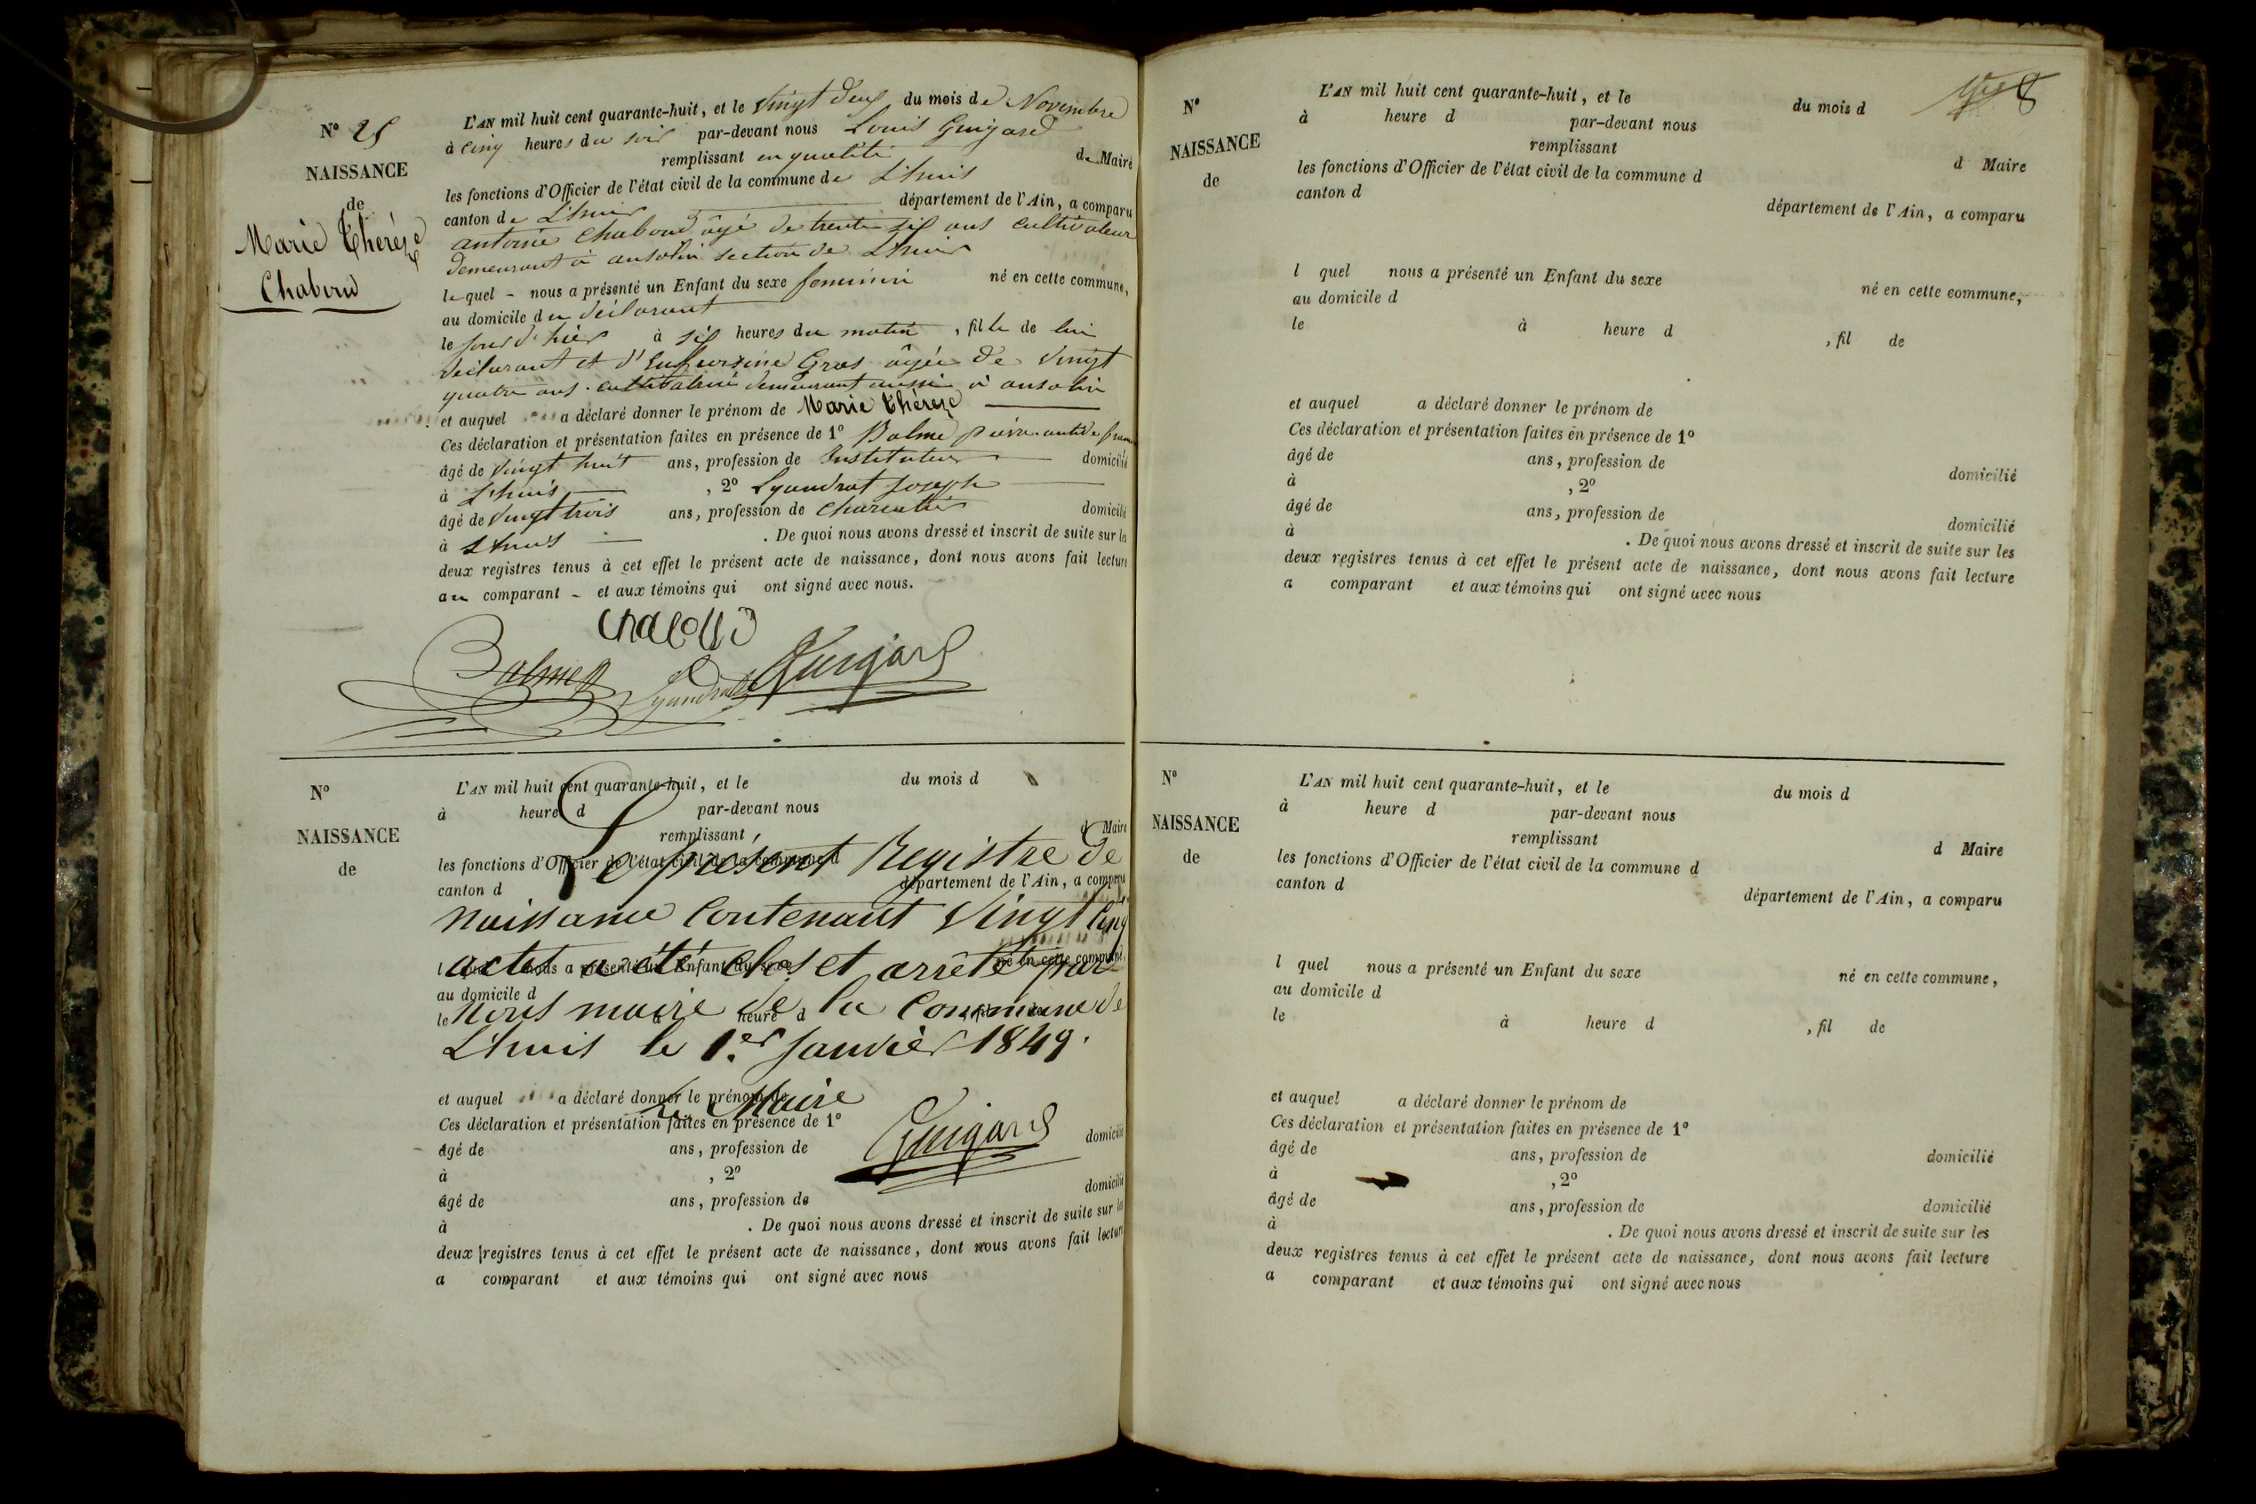 N° 25
NAISSANCE
de
Marie Thérèze
Chaboud
L'AN mil huit cent quarante-huit, et le vingt deux du mois de Novembre
à cinq heures du soir par-devant nous Louis Guigard
remplissant en qualité de Maire
les fonctions d'Officier de l'état civil de la commune de L'huis
canton de L'huis département de l'Ain, a comparu
antoine Chaboud âgé de trente six ans cultivateur
demeurant à ansolin section de L'huis
lequel - nous a présenté un Enfant du sexe feminin né en cette commune,
au domicile du déclarant
le jour d'hier à six heures du matin, fille de lui
déclarant et d' Gros âgée de vingt
quatre ans cultivatrice demeurant aussi à ansolin
et auquel a déclaré donner le prénom de Marie Thérèze
Ces déclaration et présentation faites en présence de 1° Balme
âgé de vingt huit ans, profession de Instituteur domicilié
à L'huis , 2° Lyaudrat Joseph
âgé de vingt trois ans, profession de domicilié
à L'huis . De quoi nous avons dressé et inscrit de suite sur les
deux registres tenus à cet effet le présent acte de naissance, dont nous avons fait lecture
au comparant - et aux témoins qui ont signé avec nous.
Chaboud
Balme Lyaudrat Guigard
N°
NAISSANCE
de
L'AN mil huit cent quarante-huit, et le du mois d
à heure d par-devant nous
remplissant d Maire
les fonctions d'Officier de l'état civil de la commune d
Le présent Registre de
canton d département de l'Ain, a comparu
naissance contenant vingt cinq
actes a été clos et arrêté par
l quel nous a présenté un Enfant du sexe né en cette commune,
au domicile d
nous maire de la Commune de
le à heure d , fil de
L'huis le 1.er Janvier 1849.
et auquel a déclaré donner le prénom de
Le Maire
Ces déclaration et présentation faites en présence de 1°
Guigard
âgé de ans, profession de domicilié
à , 2°
âgé de ans, profession de domicilié
à . De quoi nous avons dressé et inscrit de suite sur les
deux registres tenus à cet effet le présent acte de naissance, dont nous avons fait lecture
a comparant et aux témoins qui ont signé avec nous
8
N°
NAISSANCE
de
L'AN mil huit cent quarante-huit, et le du mois d
à heure d par-devant nous
remplissant d Maire
les fonctions d'Officier de l'état civil de la commune d
canton d département de l'Ain, a comparu
l quel nous a présenté un Enfant du sexe né en cette commune,
au domicile d
le à heure d , fil de
et auquel a déclaré donner le prénom de
Ces déclaration et présentation faites en présence de 1°
âgé de ans, profession de domicilié
à , 2°
âgé de ans, profession de domicilié
à . De quoi nous avons dressé et inscrit de suite sur les
deux registres tenus à cet effet le présent acte de naissance, dont nous avons fait lecture
a comparant et aux témoins qui ont signé avec nous
N°
NAISSANCE
de
L'AN mil huit cent quarante-huit, et le du mois d
à heure d par-devant nous
remplissant d Maire
les fonctions d'Officier de l'état civil de la commune d
canton d département de l'Ain, a comparu
l quel nous a présenté un Enfant du sexe né en cette commune,
au domicile d
le à heure d , fil de
et auquel a déclaré donner le prénom de
Ces déclaration et présentation faites en présence de 1°
âgé de ans, profession de domicilié
à , 2°
âgé de ans, profession de domicilié
à . De quoi nous avons dressé et inscrit de suite sur les
deux registres tenus à cet effet le présent acte de naissance, dont nous avons fait lecture
a comparant et aux témoins qui ont signé avec nous